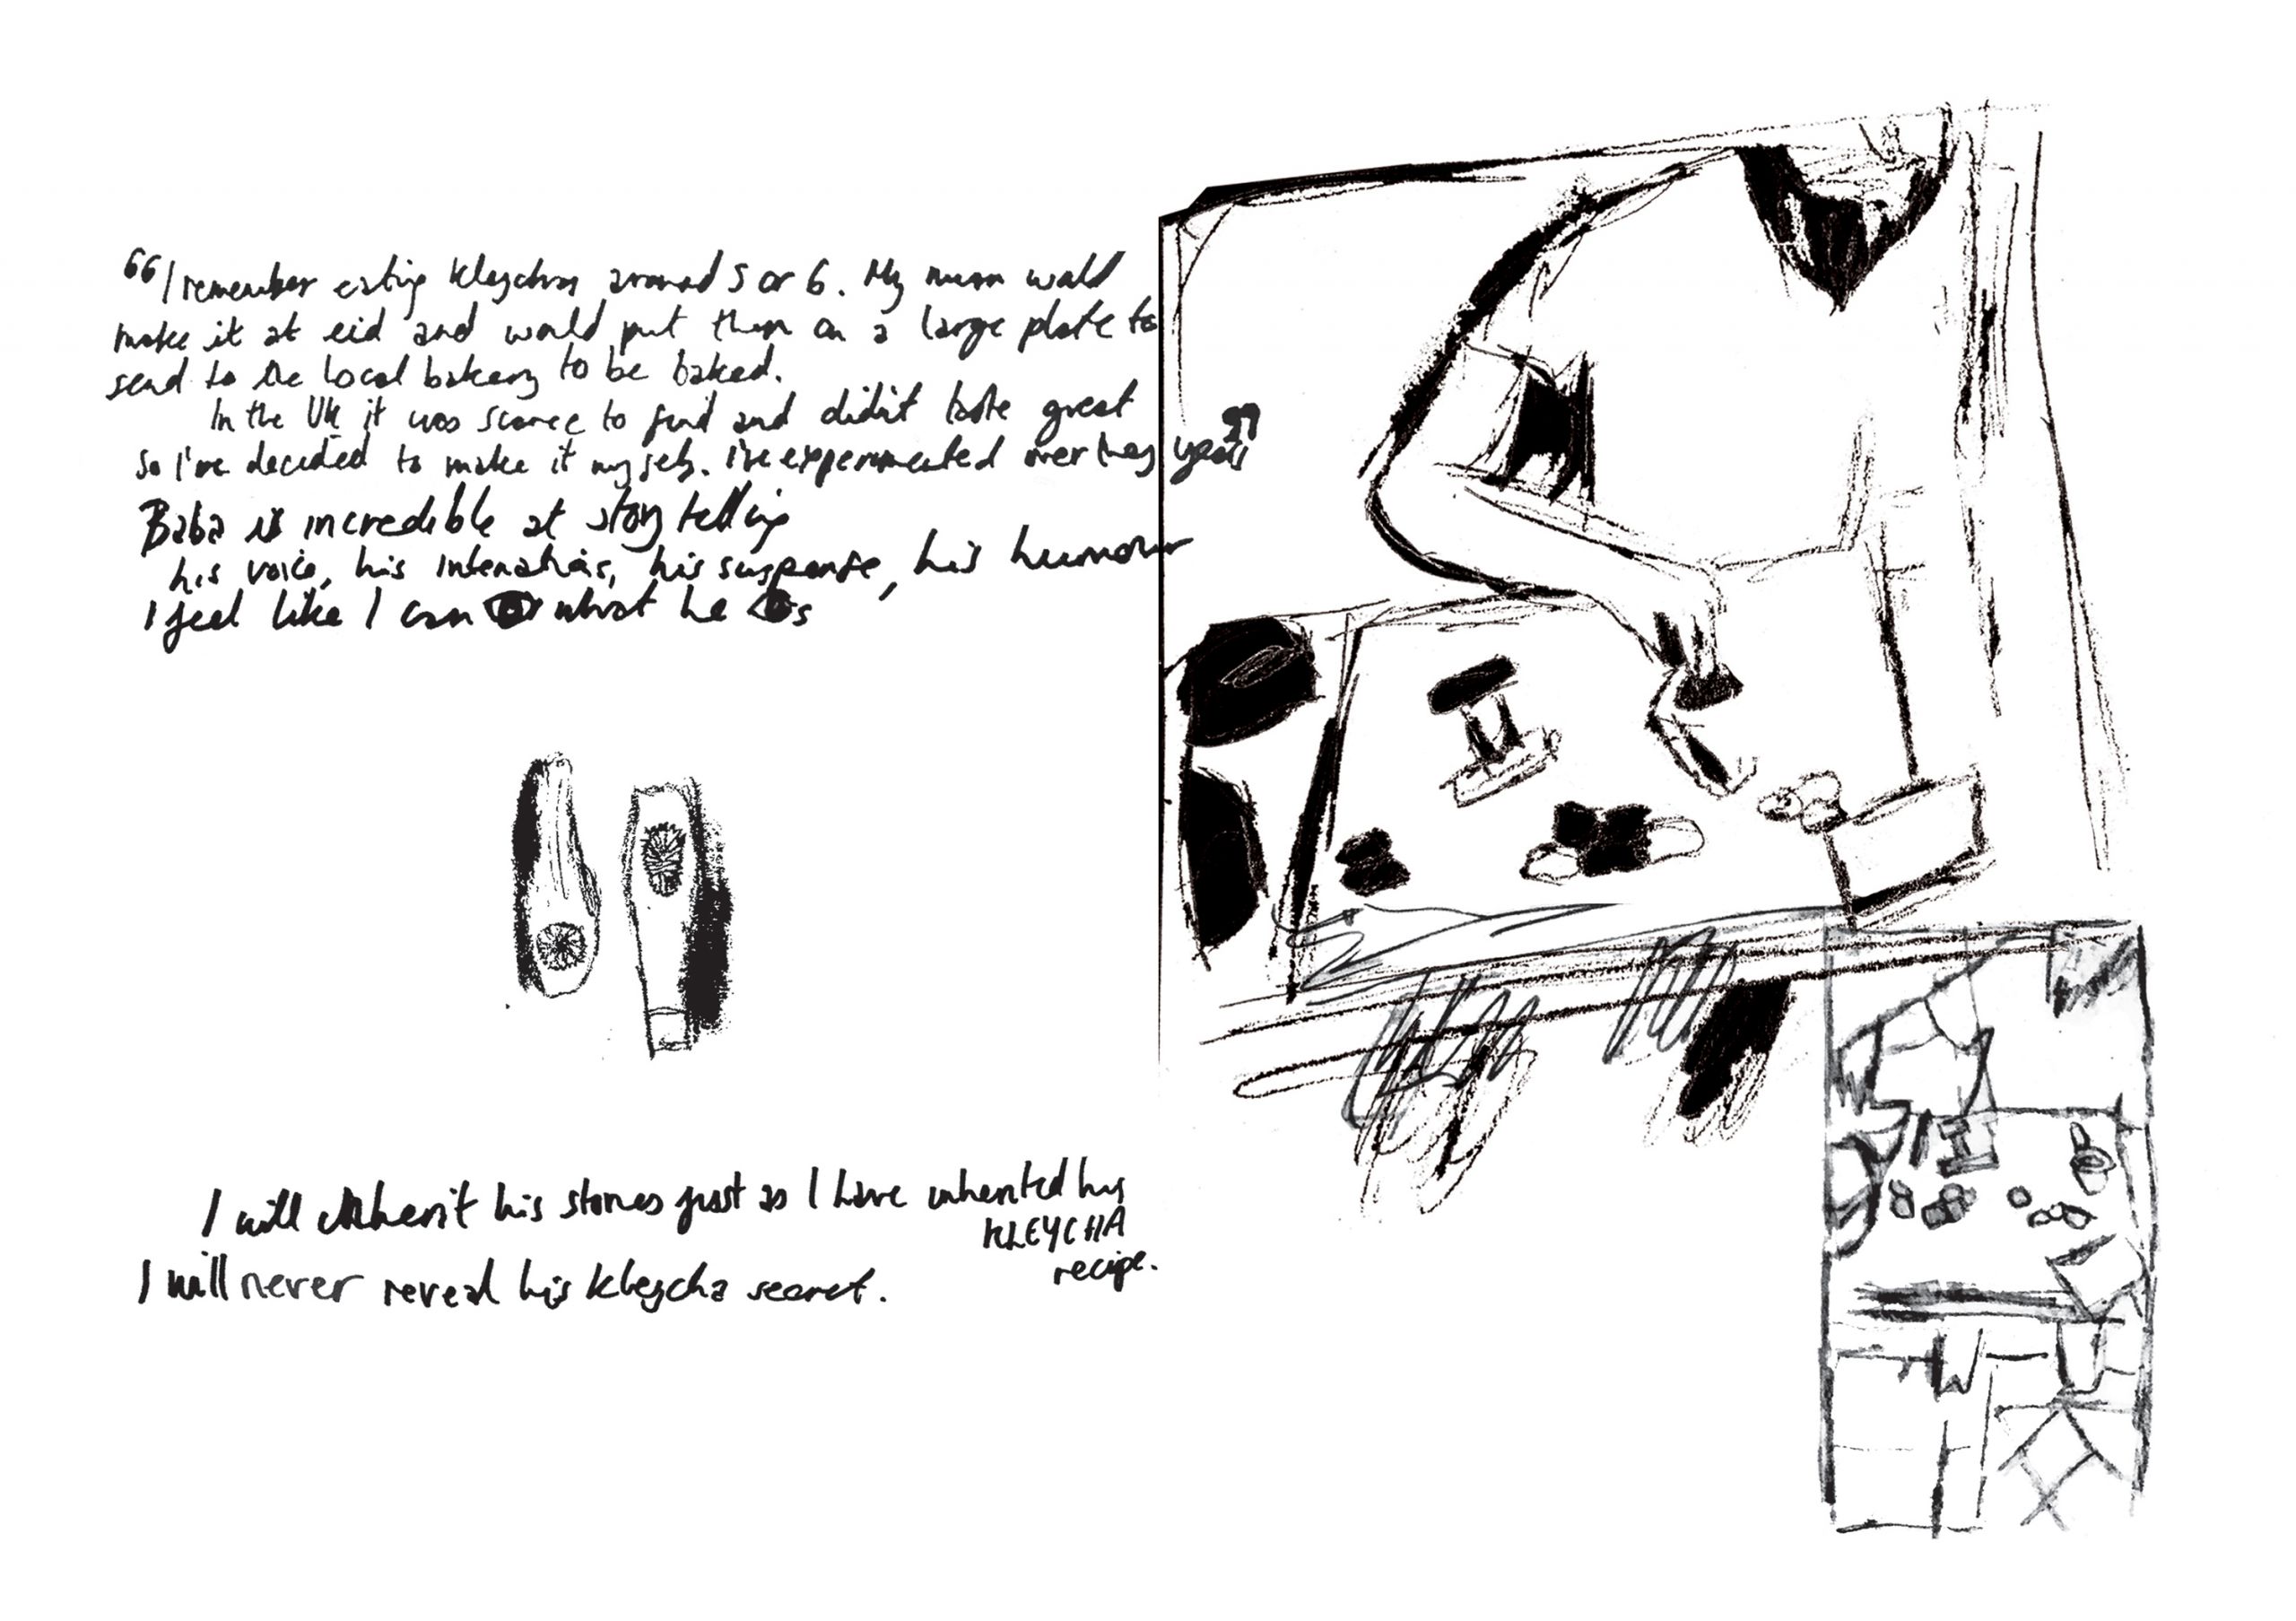 “I remember eating kleychas around 5 or 6. My mum would
make it at eid and would put them on a large plate to
send to the local bakery to be baked.
In the UK it was scarce to find and didn't taste great
so I've decided to make it myself. I've experimented over the years”
Baba is incredible at story telling
his voice, his intonations, his suspense, his humour
I feel like I can what he s
I will inherit his stories just as I have inherited his
KLEYCHA
recipe.
I will never reveal his kleycha secret.